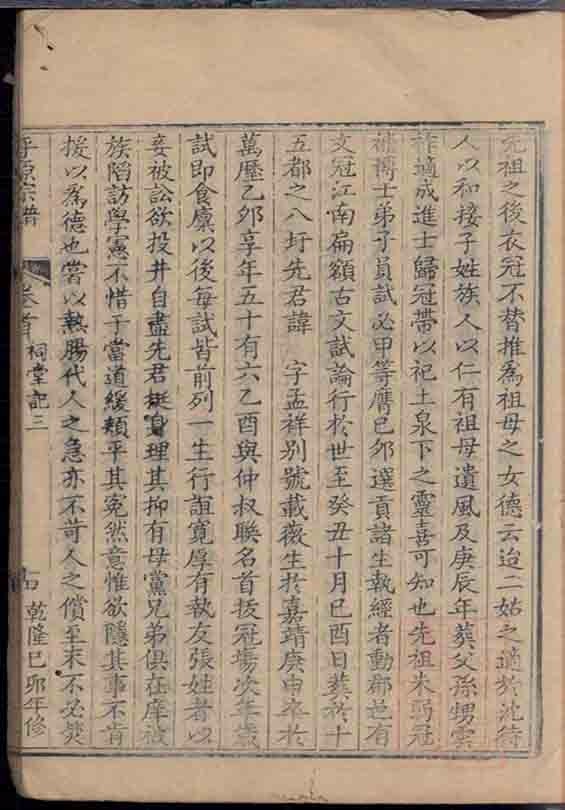 先祖之後衣冠不替推為祖母之女德云迨二姑之適於沈待
人以和接子姓族人以仁有祖母遺風及庚辰年葬父孫甥雲
祚適成進士歸冠帶以祀土泉下之靈喜可知也先祖未弱冠
補博士弟子員試必甲等膺巳卯選貢諸生執經者動郡邑有
文冠江南扁額古文試論行於世至癸丑十月巳酉日葬於十
五都之八圩先君諱 字孟祥別號載薇生於嘉靖庚申卒於
萬曆乙卯享年五十有六乙酉與仲叔聯名首拔冠場次年歲
試即食廩以後每試皆前列一生行誼寬厚有執友張姓者以
妾被訟欲投井自盡先君挺身理其抑有母黨兄弟俱在庠被
族陷訪學憲不惜于當道緩頰平其冤然意惟欲隱其事不肯
援以為德也嘗以熱腸代人之急亦不苛人之償至末不必焚
宗譜 卷首 祠堂記三 乾隆巳卯年修